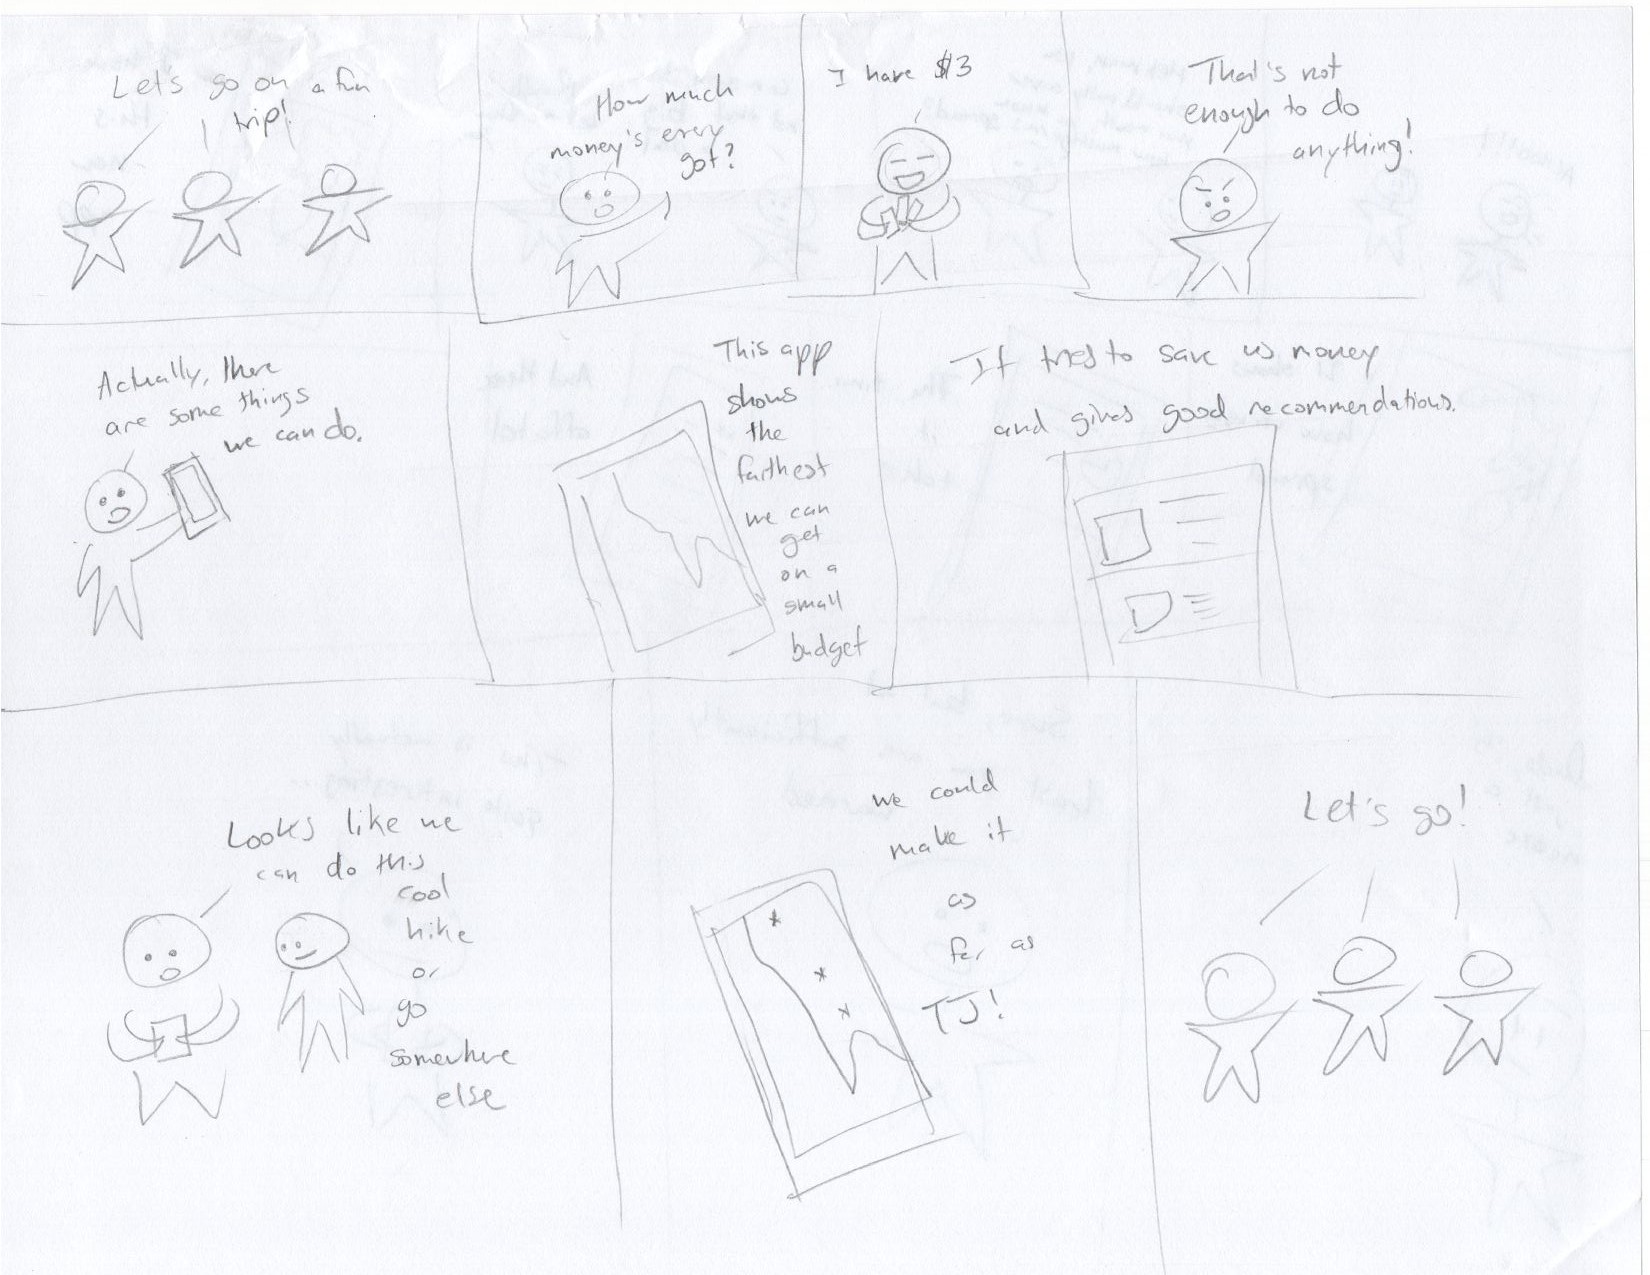 Let's go on a fun
trip!
How much
money's every
got?
I have $3
That's not
enough to do
anything!
Actually, there
are some things
we can do.
This app
shows
the
farthest
we can
get
on a
small
budget
It tries to save us money
and gives good recommendations.
Looks like we
can do this
cool
hike
or
go
somewhere
else
we could
make it
as
far as
TJ!
Let's go!